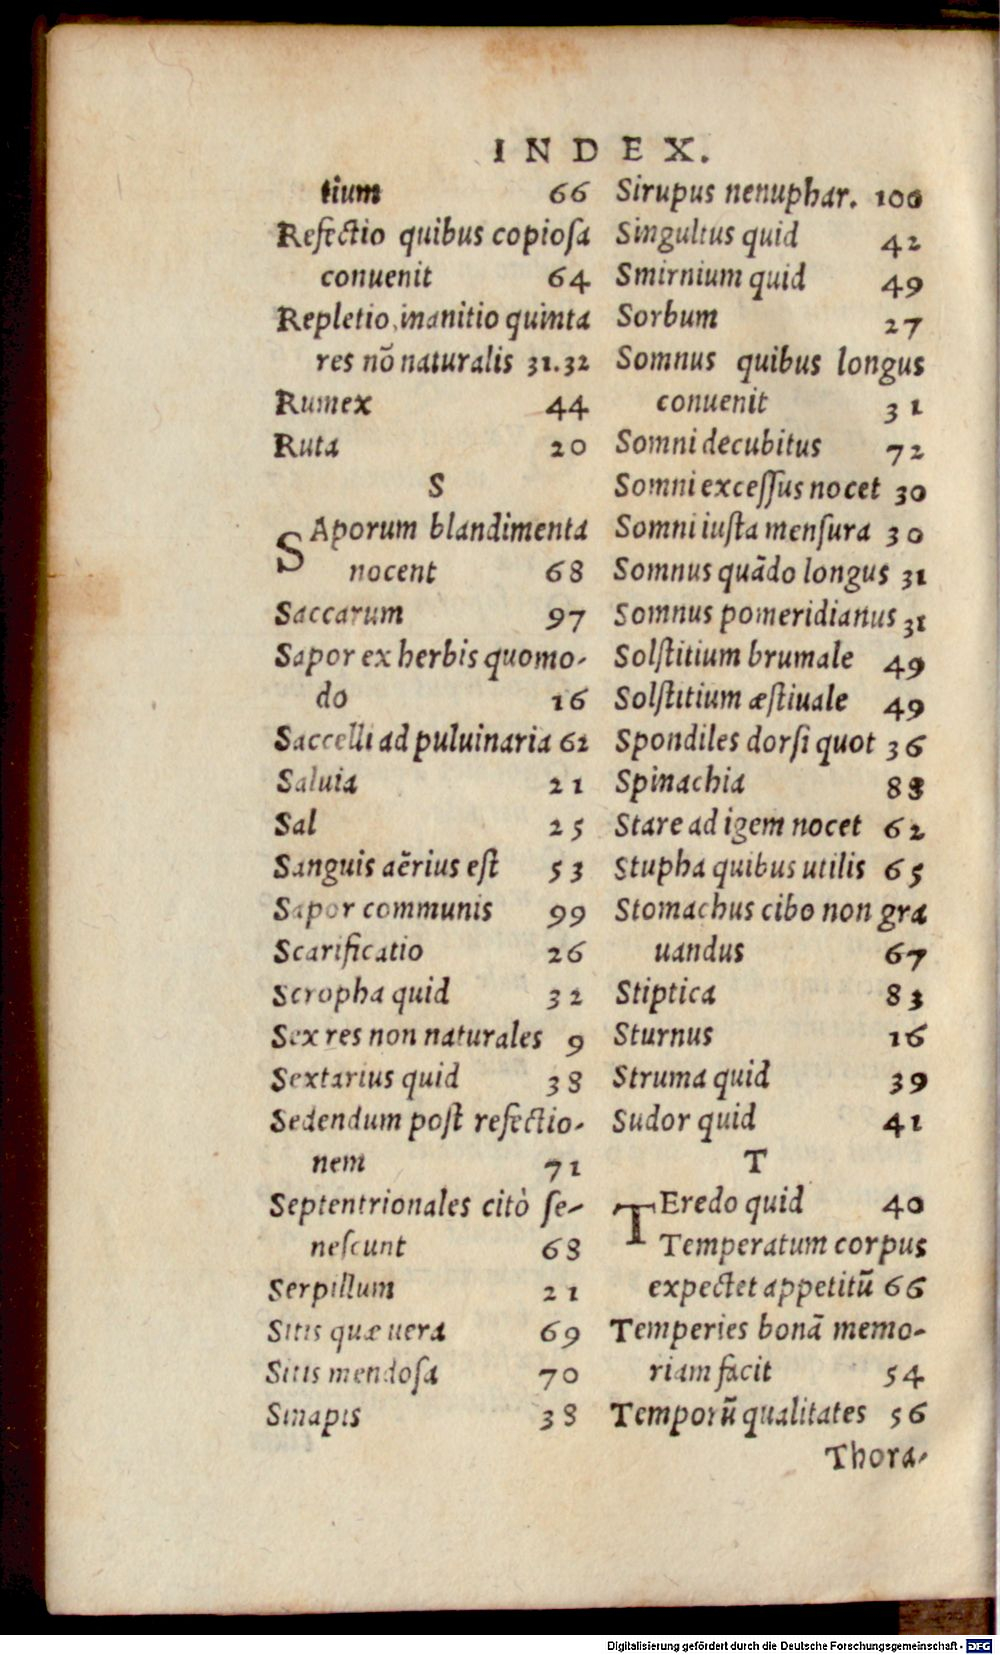 INDEX.
tium 66
Refectio quibus copiosa
conuenit 64
Repletio, inanitio quinta
res nō naturalis 31.32
Rumex 44
Ruta 20
S
SAporum blandimenta
nocent 68
Saccarum 97
Sapor ex herbis quomo-
do 16
Saccelli ad puluinaria 62
Saluia 21
Sal 25
Sanguis aẽrius est 53
Sapor communis 99
Scarificatio 26
Scropha quid 32
Sex res non naturales 9
Sextarius quid 38
Sedendum post refectio-
nem 71
Septentrionales citò se-
nescunt 68
Serpillum 21
Sitis quæ uera 69
Sitis mendosa 70
Sinapis 38
Sirupus nenuphar. 100
Singultus quid 42
Smirnium quid 49
Sorbum 27
Somnus quibus longus
conuenit 31
Somni decubitus 72
Somni excessus nocet 30
Somni iusta mensura 30
Somnus quādo longus 31
Somnus pomeridianus 31
Solstitium brumale 49
Solstitium æstiuale 49
Spondiles dorsi quot 36
Spinachia 88
Stare ad igem nocet 62
Stupha quibus utilis 65
Stomachus cibo non gra
uandus 67
Stiptica 83
Sturnus 16
Struma quid 39
Sudor quid 41
T
TEredo quid 40
Temperatum corpus
expectet appetitū 66
Temperies bonā memo-
riam facit 54
Temporū qualitates 56
Thora-
Digitalisierung gefördert durch die Deutsche Forschungsgemeinschaft - DFG